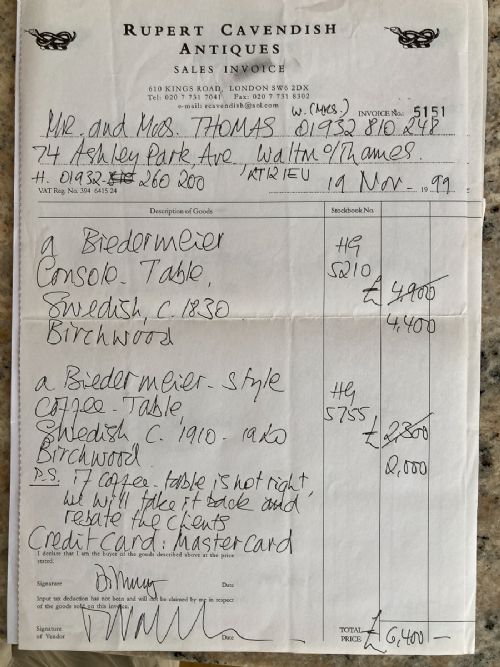 RUPERT CAVENDISH
ANTIQUES
SALES INVOICE
610 KINGS ROAD, LONDON SW6 2DX
Tel: 020 7 731 7041 Fax: 020 7 731 8302
e-mail: rcavendish@aol.com
W. (MRS.) INVOICE No.: 5151
MR. and Mrs. THOMAS 01932 810 248
74 Ashley Park Ave, Walton o/Thames.
H. 01932 260 200 KT12 1EU 19 Nov - 1999
VAT Reg. No. 394 6415 24
Description of Goods Stockbook No.
a Biedermeier HG
Console-Table, 5210
£ 4,900
Swedish, c. 1830
4,400
Birchwood
a Biedermeier-style HG
Coffee-Table 5755
Swedish c. 1910-1920 £ 2,300
Birchwood 2,000
P.S. if coffee-table is not right,
we will take it back and
rebate the clients
Credit Card: Mastercard
I declare that I am the buyer of the goods described above at the price
stated.
Signature Date
Input tax deduction has not been and will not be claimed by me in respect
of the goods sold on this invoice.
Signature
of Vendor Date
TOTAL
PRICE £ 6,400 —